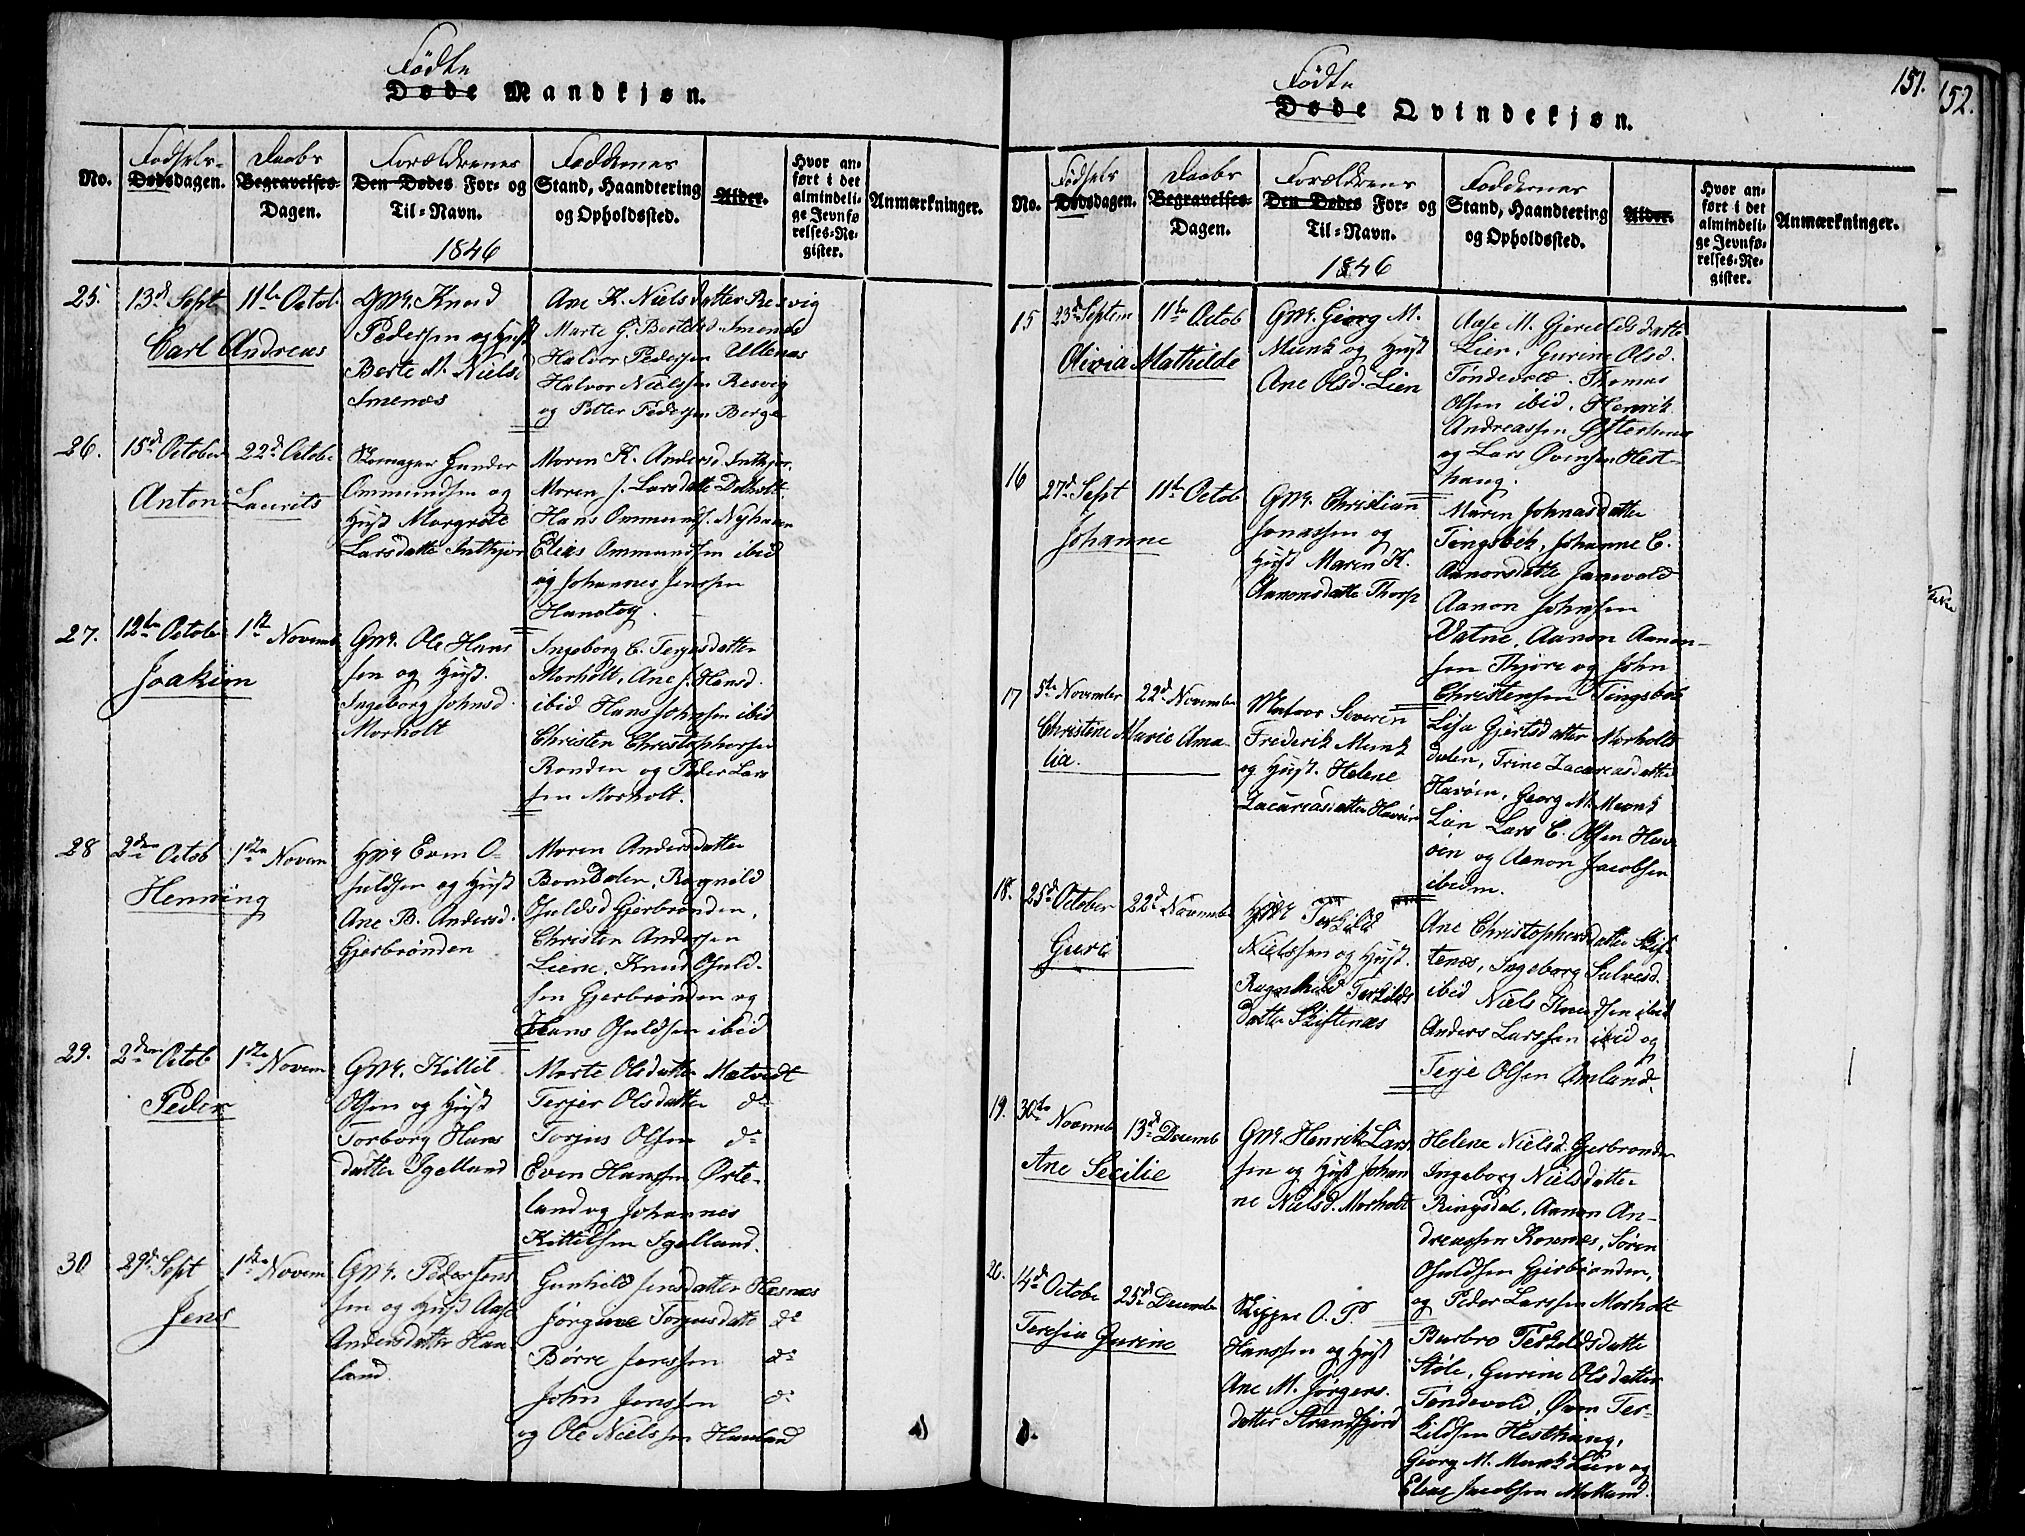 Fødte
Døde Mandkjøn.
No.
Fødsels-
Dødsdagen.
Daabs
Begravelses-
Dagen.
Forældrenes
Den Dødes For- og
Til-Navn.
1846
Faddernes
Stand, Haandtering
og Opholdssted.
Alder.
Hvor an-
ført i det
almindeli-
ge Jevnfø
relses-Re-
gister.
Anmærkninger.
25. 13d Sept 11te Octob.
Carl Andreas
Gmd. Knud
Pedersen og Hust
Berte M. Nielsd
Smenæs
Ane K. Nielsdatter Resvig
Marte G. Bertelsd. Smenæs
Halvor Pedersen Ullenæs
Halvor Nielsen Resvig
og Petter Pedersen Berge
26. 15d October 22d Octob.
Anton Laurits
Skomager Gunder
Ommundsen og
Hust Margrete
Larsdatte Inthjør
Maren K. Andersd Inthjør.
Maren J. Larsdatte Dalholt
Hans Ommunds. Nyhavn
Elias Ommundsen ibid
og Johannes Jenssen
Hanstog.
27. 12te Octob 1te Novemb
Joakim
Gmd. Ole Hans
sen og Hust.
Ingeborg Johnsd.
Morholt
Ingeborg C. Terjesdatter
Morholt, Ane J. Hansd.
ibid Hans Johnsen ibid
Christen Christophersen
Randen og Peder Lars
sen Morholt.
28 2den Octob 1ste Novem
Henning
Hmd Even O-
suldsen og Hust
Ane B. Andersd.
Gjerbrønden
Maren Andersdatter
Bomdalen, Ragnild
Osuldsd Gjerbrønden,
Christen Andersen
Liene, Knud Osuld-
sen Gjerbrønden og
Hans Osuldsen ibid
29. 2den Octob 1ste Novem
Peder
Gmd. Killil
Olsen og Hust
Torborg Hans
datter Igelland
Marte Olsdatter Mætvedt
Terjer Olsdatter do
Torjus Olsen do
Even Hanssen Ørte-
land og Johannes
Kittelsen Igelland.
30 29d Sept 1ste Novem
Jens
Gmd. Peder Jens
sen og Hust Aase
Andersdatter Haa
land.
Gunhild Jensdatter Hæsnæs
Jørgine Torjusdatte do
Børre Jenssen do
John Jenssen do
og Ole Nielssen Haaland
151.
152.
Fødte
Døde Qvindekjøn.
No.
Fødsels
Dødsdagen.
Daabs
Begravelses-
Dagen.
Forældrens
Den Dødes For- og
Til-Navn.
1846
Faddernes
Stand, Haandtering
og Opholdssted.
Alder.
Hvor an-
ført i det
almindeli-
ge Jevnfø-
relses-Re-
gister.
Anmærkninger.
15 23d Septem 11te Octob
Olivia Mathilde
Gmd. Georg M.
Munk og Hust
Ane Olsd. Lien
Aase M. Gjeruldsdatte
Lier. Gurine Olsd.
Tøndevold. Thomas
Olsen ibid, Henrik
Andreassen
og Lars Øvensen Hest-
haug.
16 27d Sept 11te Octob
Johanne
Gmd. Christian
Jonassen og
Hust Maren K.
Aanonsdatte Thorp
Maren Johnasdatter
Tingsbek, Johanne C.
Aanorsdatte Janvold
Aanon Johnsen
Vatne, Aanon Aanon-
sen Thjøre og John
Christensen Tingsbek
17 5te November 22d November
Christine Marie Ama-
lia.
Matros Severin
Frederik Munk
og Hust. Helene
Zacariasdatter Havøen
Lisa Gjertsdatter Morholts
dalen, Trine Zacariasdatte
Havøen, Georg M. Munk
Lien Lars C. Olsen Hav
øen og Aanon Jacobsen
ibidm.
18. 25d October 22d Novemb
Guri
Terkild
Nielssen og Hust.
Ragnhild Terkilds
datter Skiftenæs
Ane Christophersdatter Skif
tenæs, Ingeborg Salvesd.
ibid Niels Knudsen ibid
Anders Larssen ibid og
Terje Olsen Omland.
19. 30te Novemb 13d Decemb
Ane Secilie
Gmd. Henrik Lars
sen og Hust Johan
ne Nielsd. Morholt
Helene Nielsd. Gjerbrønden
Ingeborg Nielsdatter
Ringsdal, Aanon An-
dreassen Kosenæs, Søren
Osuldsen Gjerbrønden,
og Peder Larssen Morholt
20. 4d Octobe 25d Decembe
Teresia Gurine
Skipper O. P.
Hanssen og Hust
Ane M. Jørgens
datter Strandfjord
Barbro Terkeldsdatte
Støle, Gurine Olsdatter
Tøndevold, Øven Ter-
kildsen Hesthaug,
Georg M. Munk Lien og
Elias Jacobsen Molland.